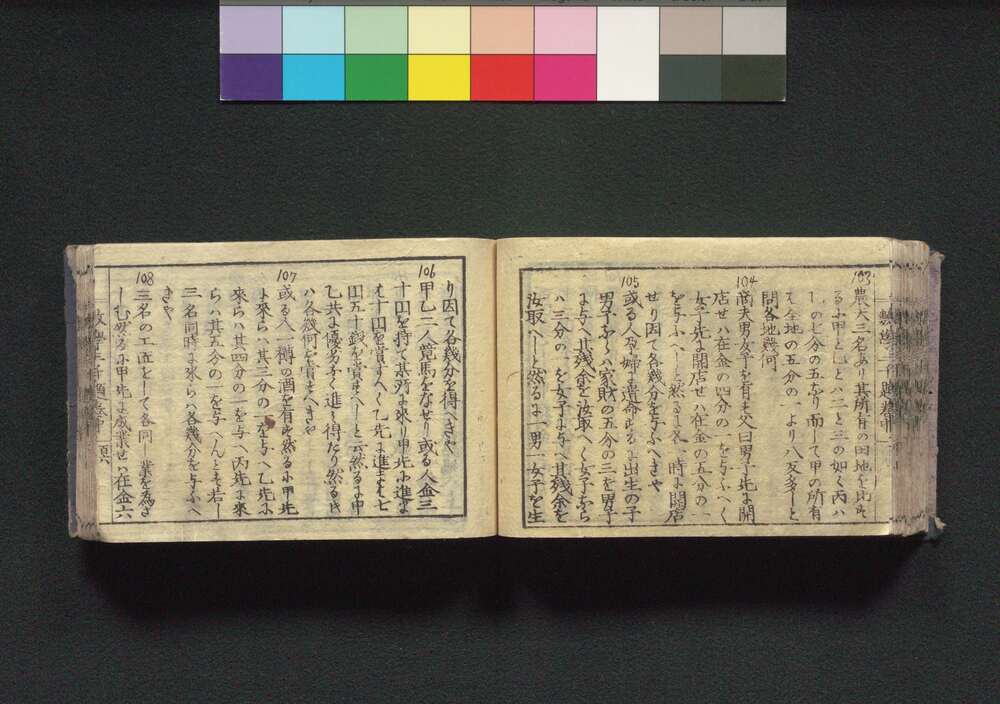 103
農夫三名あり其所有の田地を比す
るに甲と乙とハ二と三の如く丙ハ
乙の七分の五なり而して甲の所有
ハ全地の五分の一より八反多しと
問各地幾何
104
商夫男女子を有す父曰男子先に開
店せハ在金の四分の一を与ふへく
女子先に開店せハ在金の五分の一
を与ふへしと然るに衆一時に開店
せり因て各幾分を与ふへきや
105
或る人孕婦に遺命するに出生の子
男子ならハ家財の五分の三を男子
に与へ其残余を汝取へく女子なら
ハ三分の一を女子に与へ其残余を
汝取へしと然るに一男一女子を生
り因て各幾分を得へきや
106
甲乙二人競馬をなせり或る人金三
十円を持て其所に来り甲先に進まは
十円を賞すへく乙先に進まは七
円五十銭を賞すへしと云然るに甲
乙共に優劣なく進を得たり然るは
ハ各幾何を賞すへきや
107
或る人一樽の酒を有す然るに甲先
に來らハ其三分の一を与へ乙先に
來らハ其四分の一を与へ丙先に來
らハ其五分の一を与へんとす若し
三名同時に來らハ各幾分を与ふへ
きや
108
三名の工匠をして各同し業を為さ
しむ然るに甲先に成業せハ在金六